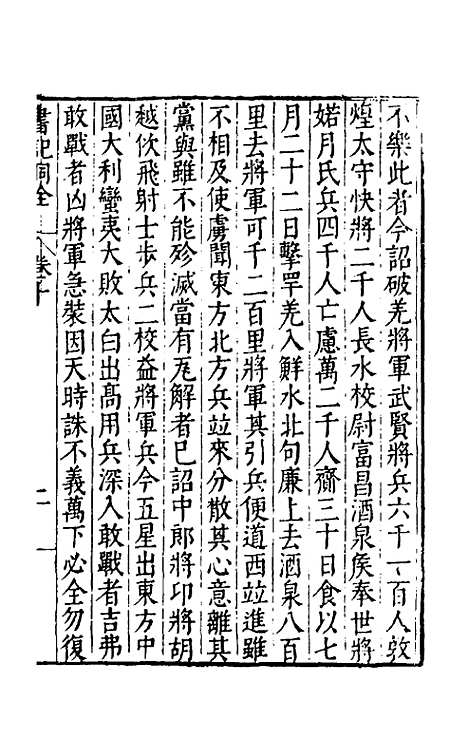 不樂此者今詔破羌將軍武賢將兵六千一百人敦
煌太守快將二千人長水校尉富昌酒泉矦奉世將
婼月氏兵四千人亡慮萬二千人齎三十日食以七
月二十二日擊罕羌入鮮水北句廉上去酒泉八百
里去將軍可千二百里將軍其引兵便道西竝進雖
不相及使虜聞東方北方兵竝來分散其心意離其
黨與雖不能殄滅當有瓦解者已詔中郎將卬將胡
越佽飛射士步兵二校益將軍兵今五星出東方中
國大利蠻夷大敗太白出高用兵深入敢戰者吉弗
敢戰者凶將軍急裝因天時誅不義萬下必全勿復
書記洞詮
卷
二